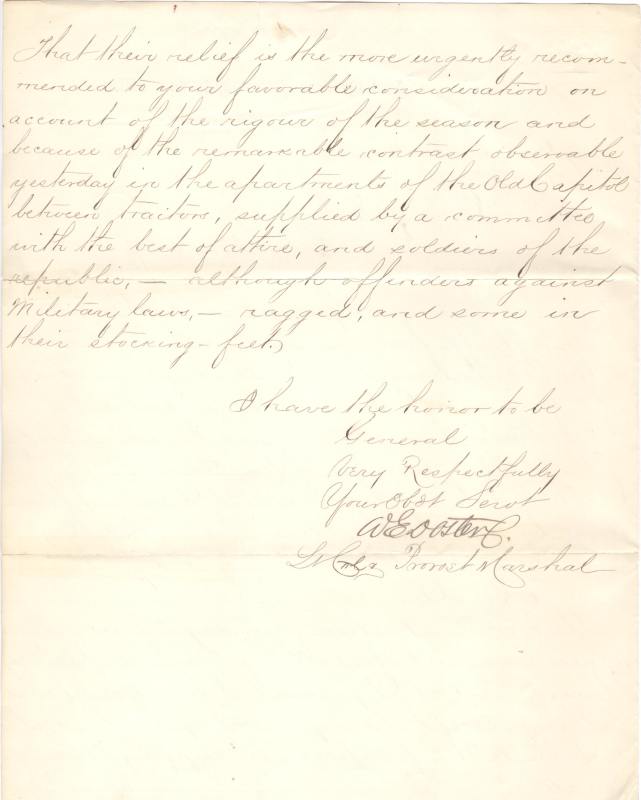 That their relief is the more urgently recom-
mended to your favorable consideration on
account of the rigour of the season and
because of the remarkable contrast observable
yesterday in the apartments of the Old Capitol
between traitors, supplied by a committee
with the best of attire, and soldiers of the
republic, — although offenders against
Military laws, — ragged, and some in
their stocking-feet.
I have the honor to be
General
Very Respectfully
Your Obdt Servt
W E Doster
Lt Col & Provost Marshal